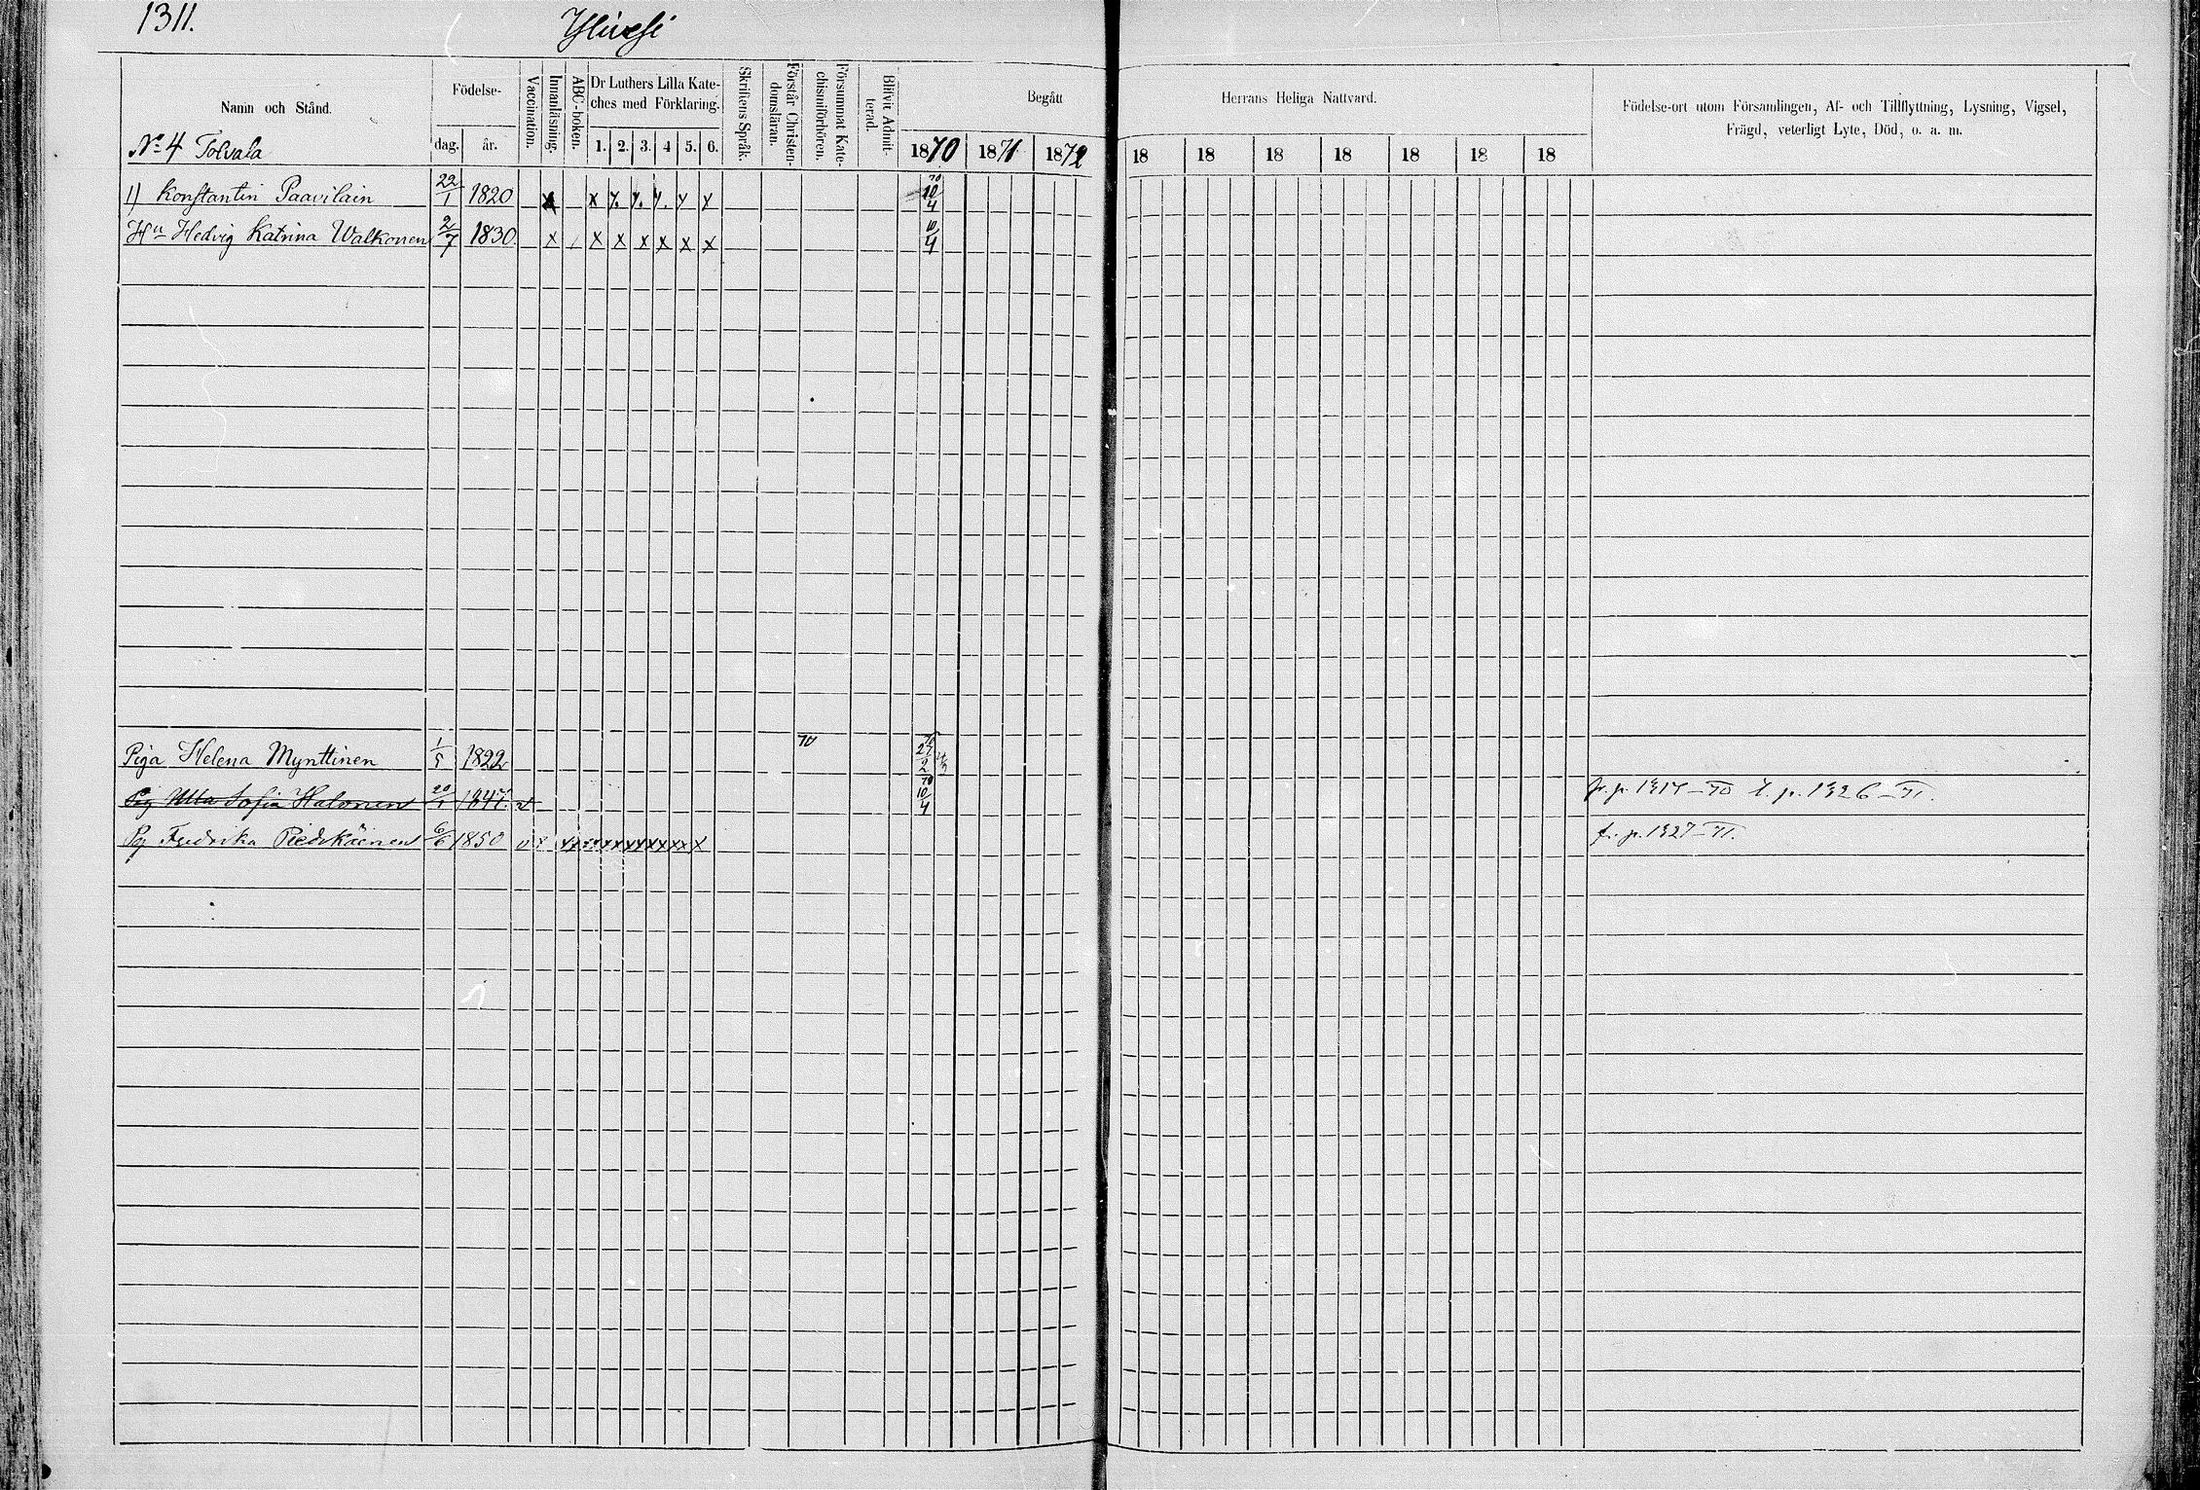 1311.
Ylivesi
Namn och Stånd.
Födelse-
dag.
år.
Vaccination.
Innanläsning.
ABC-boken.
Dr Luthers Lilla Kate-
ches med Förklaring.
1. 2. 3. 4 5. 6.
Skriftens Språk.
Förstår Christen-
domsläran.
Försummat Kate-
chismiförhören.
Blifvit Admit-
terad.
Begått
Herrans Heliga Nattvard.
1870 1871 1872 18 18 18 18 18 18 18
Födelse-ort utom Församlingen, Af- och Tillflyttning, Lysning, Vigsel,
Frägd, veterligt Lyte, Död, o. a. m.
No 4 Tolvala
1) Konstantin Paavilain 22/1 1820 x x x x x x x 70 10/4
Hu Hedvig Katrina Walkonen 2/7 1830 x x x x x x x 10/4
Piga Helena Mynttinen 1/5 1822 70
Pig Ulla Sofia Halonen 20/1 1847. v 70 10/4 fr. p. 1317-70 t. p. 1326-71.
Pig Fredrika 6/6 1850 fr. p. 1327-71.